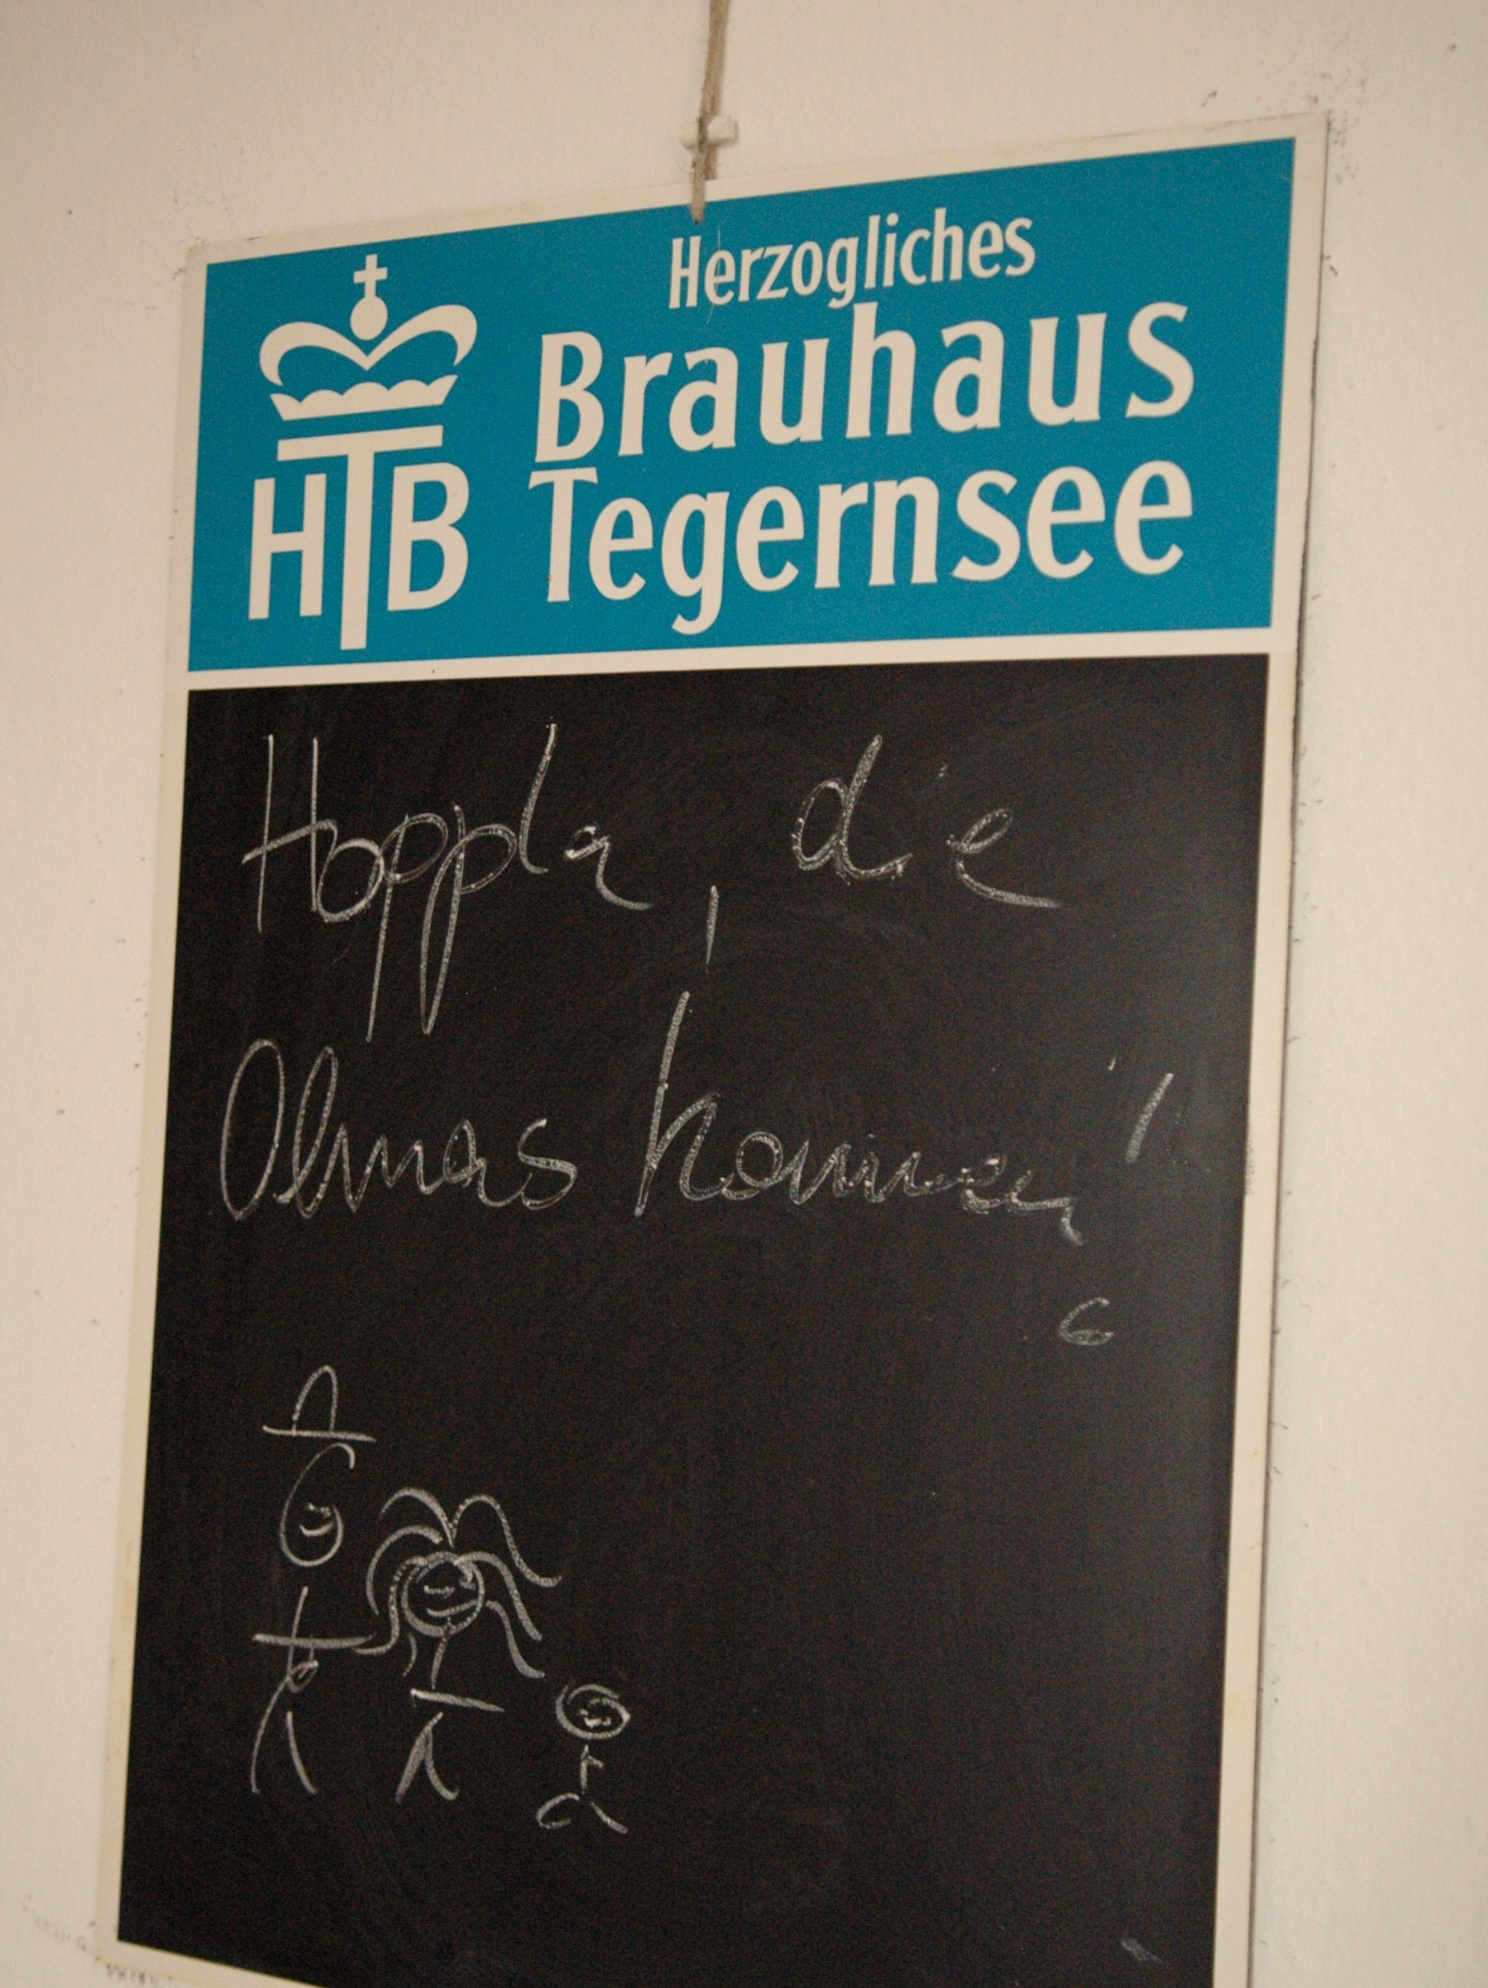 HTB
Herzogliches
Brauhaus
Tegernsee
Hoppla, die
Olmas kommen!